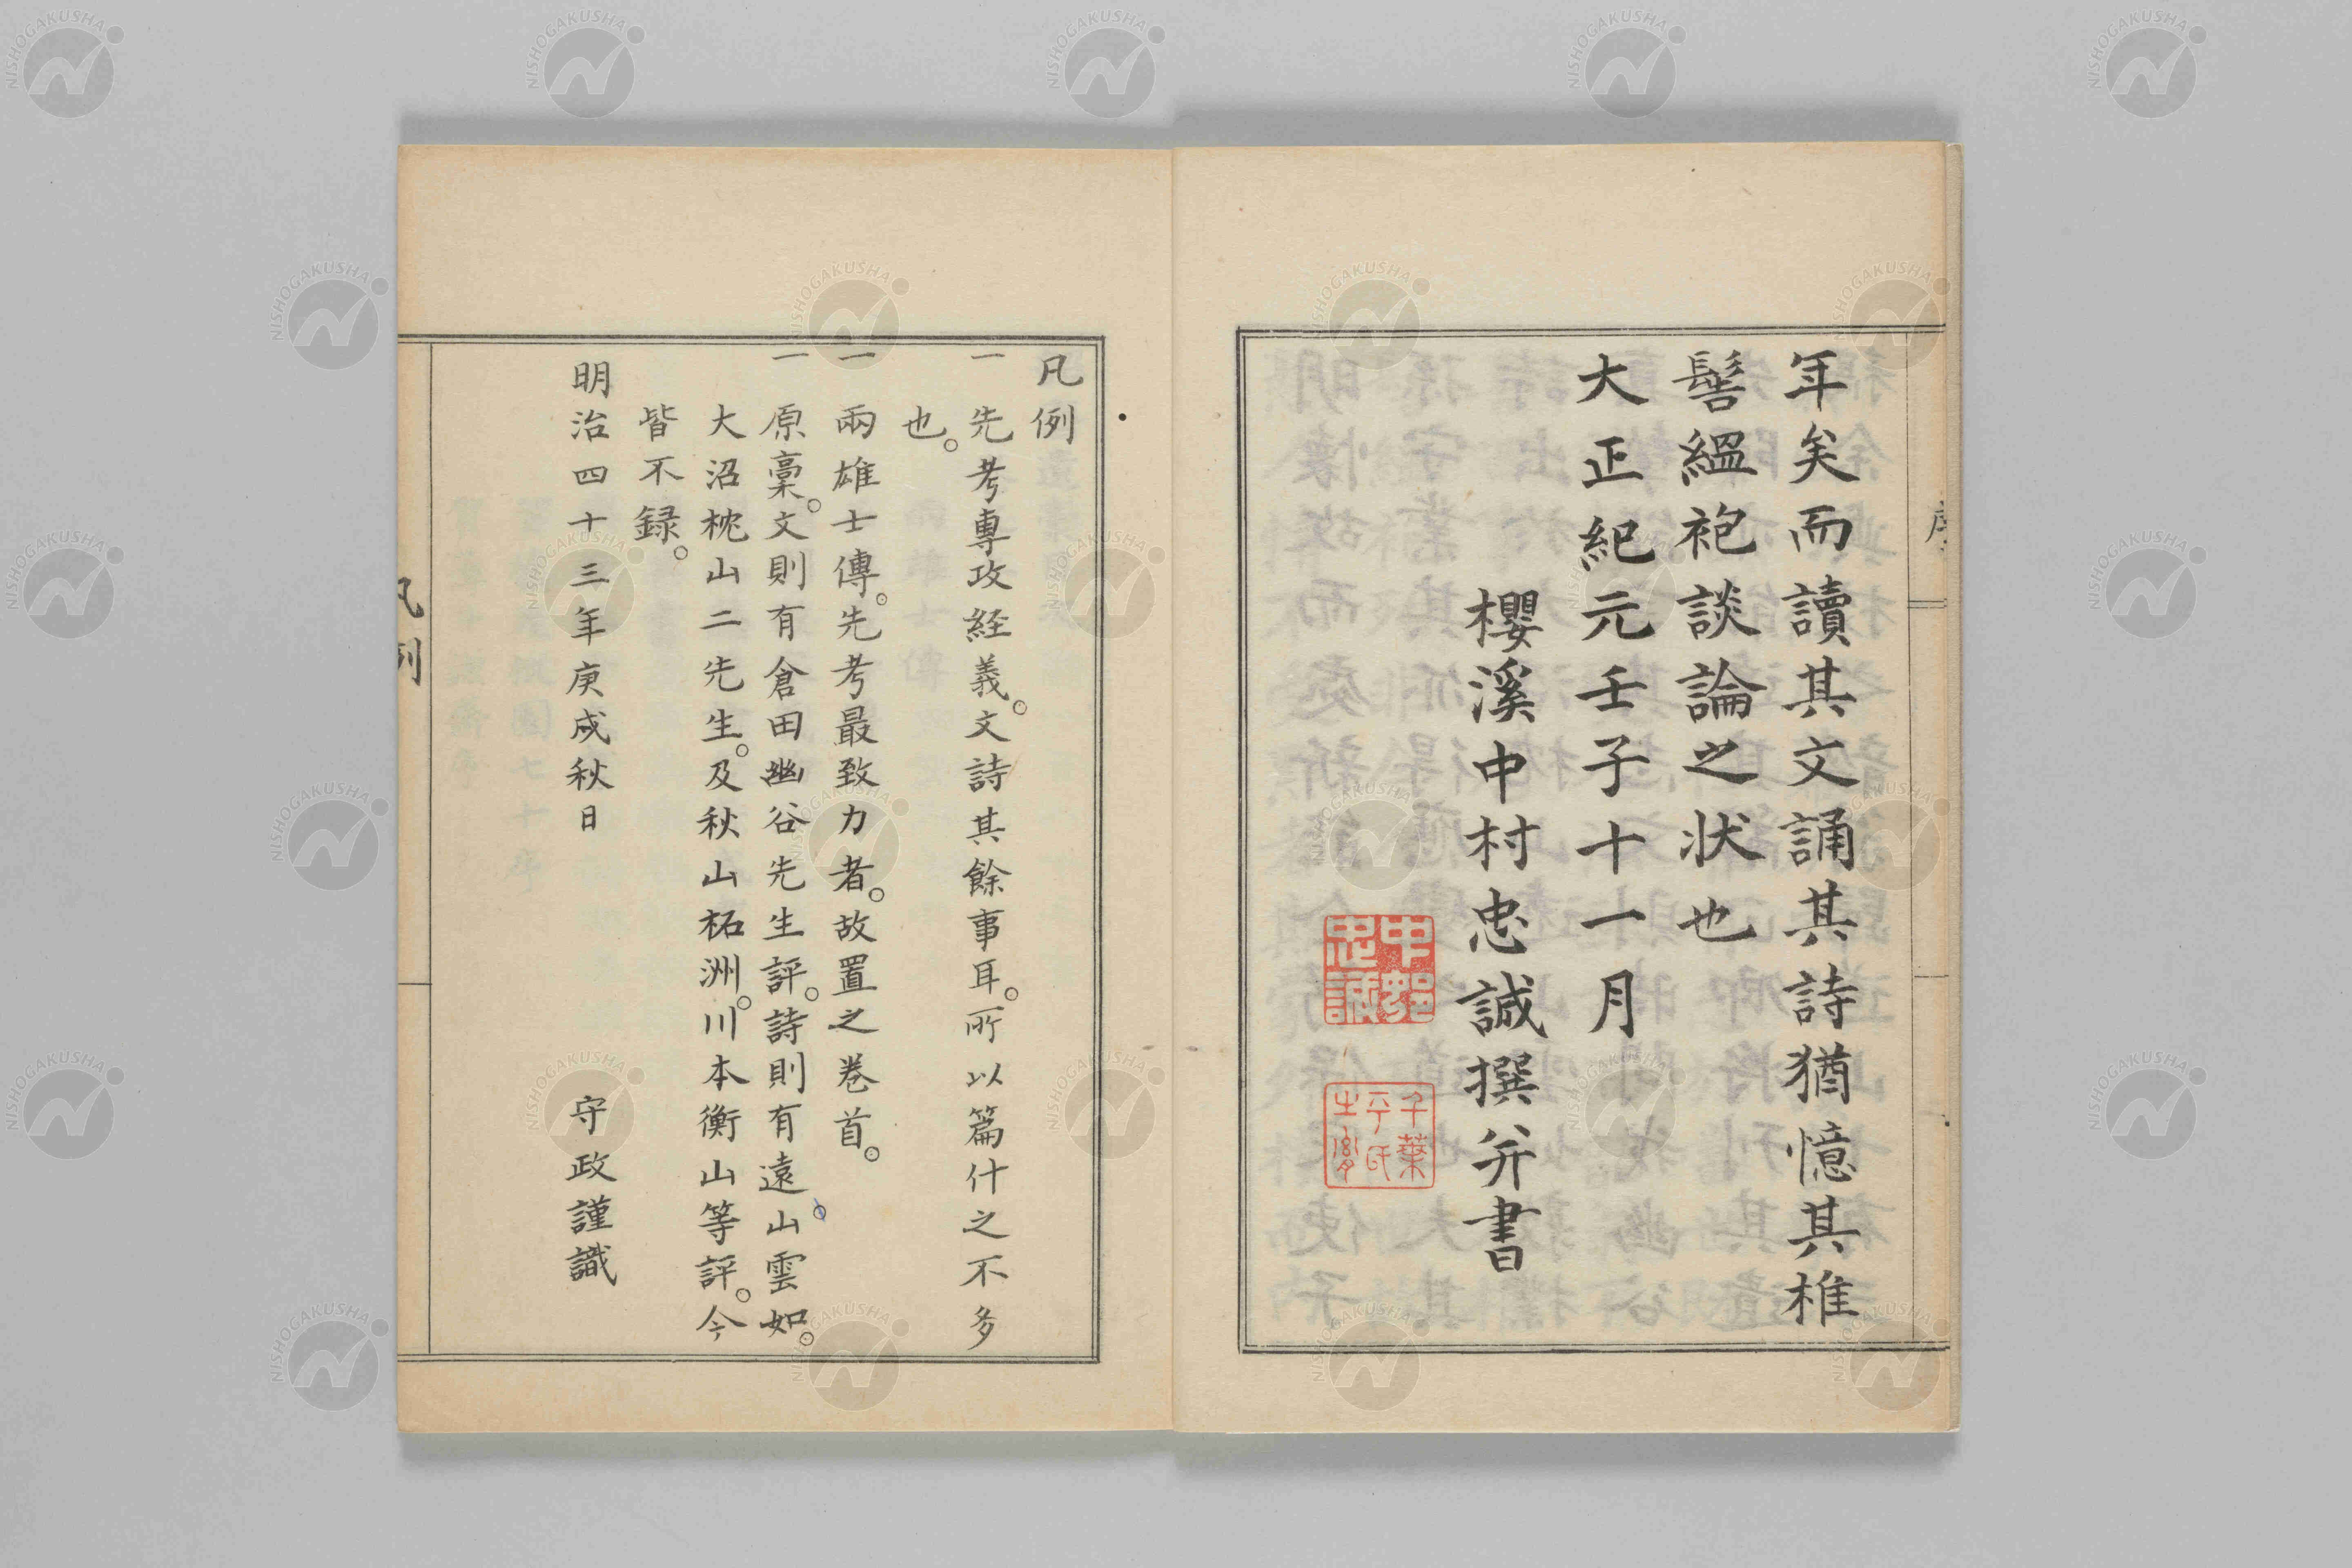 序
年矣而讀其文誦其詩猶憶其椎
髻縕袍談論之状也
大正紀元壬子十一月
櫻溪中村忠誠撰并書
凡例
一 先考專攻経義。文詩其餘事耳。所以篇什之不多
也。
一 兩雄士傳。先考最致力者。故置之卷首。
一 原稾。文則有倉田幽谷先生評。詩則有遠山雲如。
大沼枕山二先生。及秋山柘洲。川本衡山等評。今
皆不録。
明治四十三年庚戌秋日 守政謹識
凡例
NISHOGAKUSHA